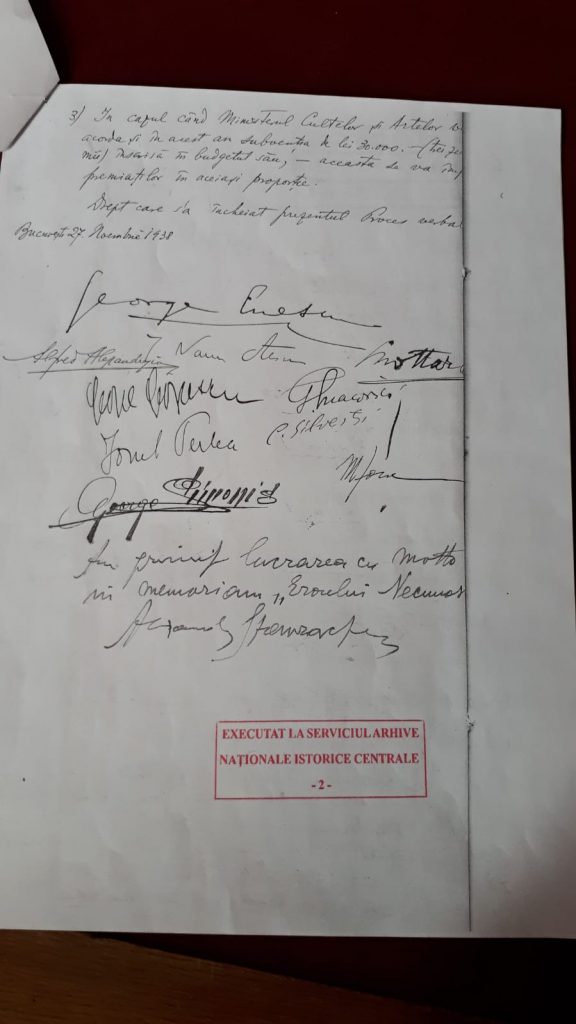 3) In cazul când Ministerul Cultelor și Artelor v
acorda și în acest an subvenția de lei 30.000.- (trei ze
mii) înscrisă în budgetul său, – aceasta se va îm
premiaților în aceiași proporție.
Drept care s'a încheiat prezentul Proces verba
București 27 Noembrie 1938
George Enescu
Alfred Alexandrescu
Ionel Perlea C. Silvestri
M Jora
George Simonis
Am primit lucrarea cu motto
in memoriam „Eroului Necunos
EXECUTAT LA SERVICIUL ARHIVE
NAȚIONALE ISTORICE CENTRALE
- 2 -